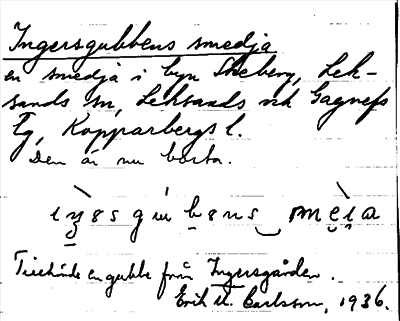 Ingersgubbens smedja
en smedja i byn Skeberg, Lek-
sands sn, Leksands och Gagnefs
tg, Kopparbergs l.
Den är nu borta.
Tillhörde en gubbe från Ingersgården.
Erik O. Carlsson, 1936.